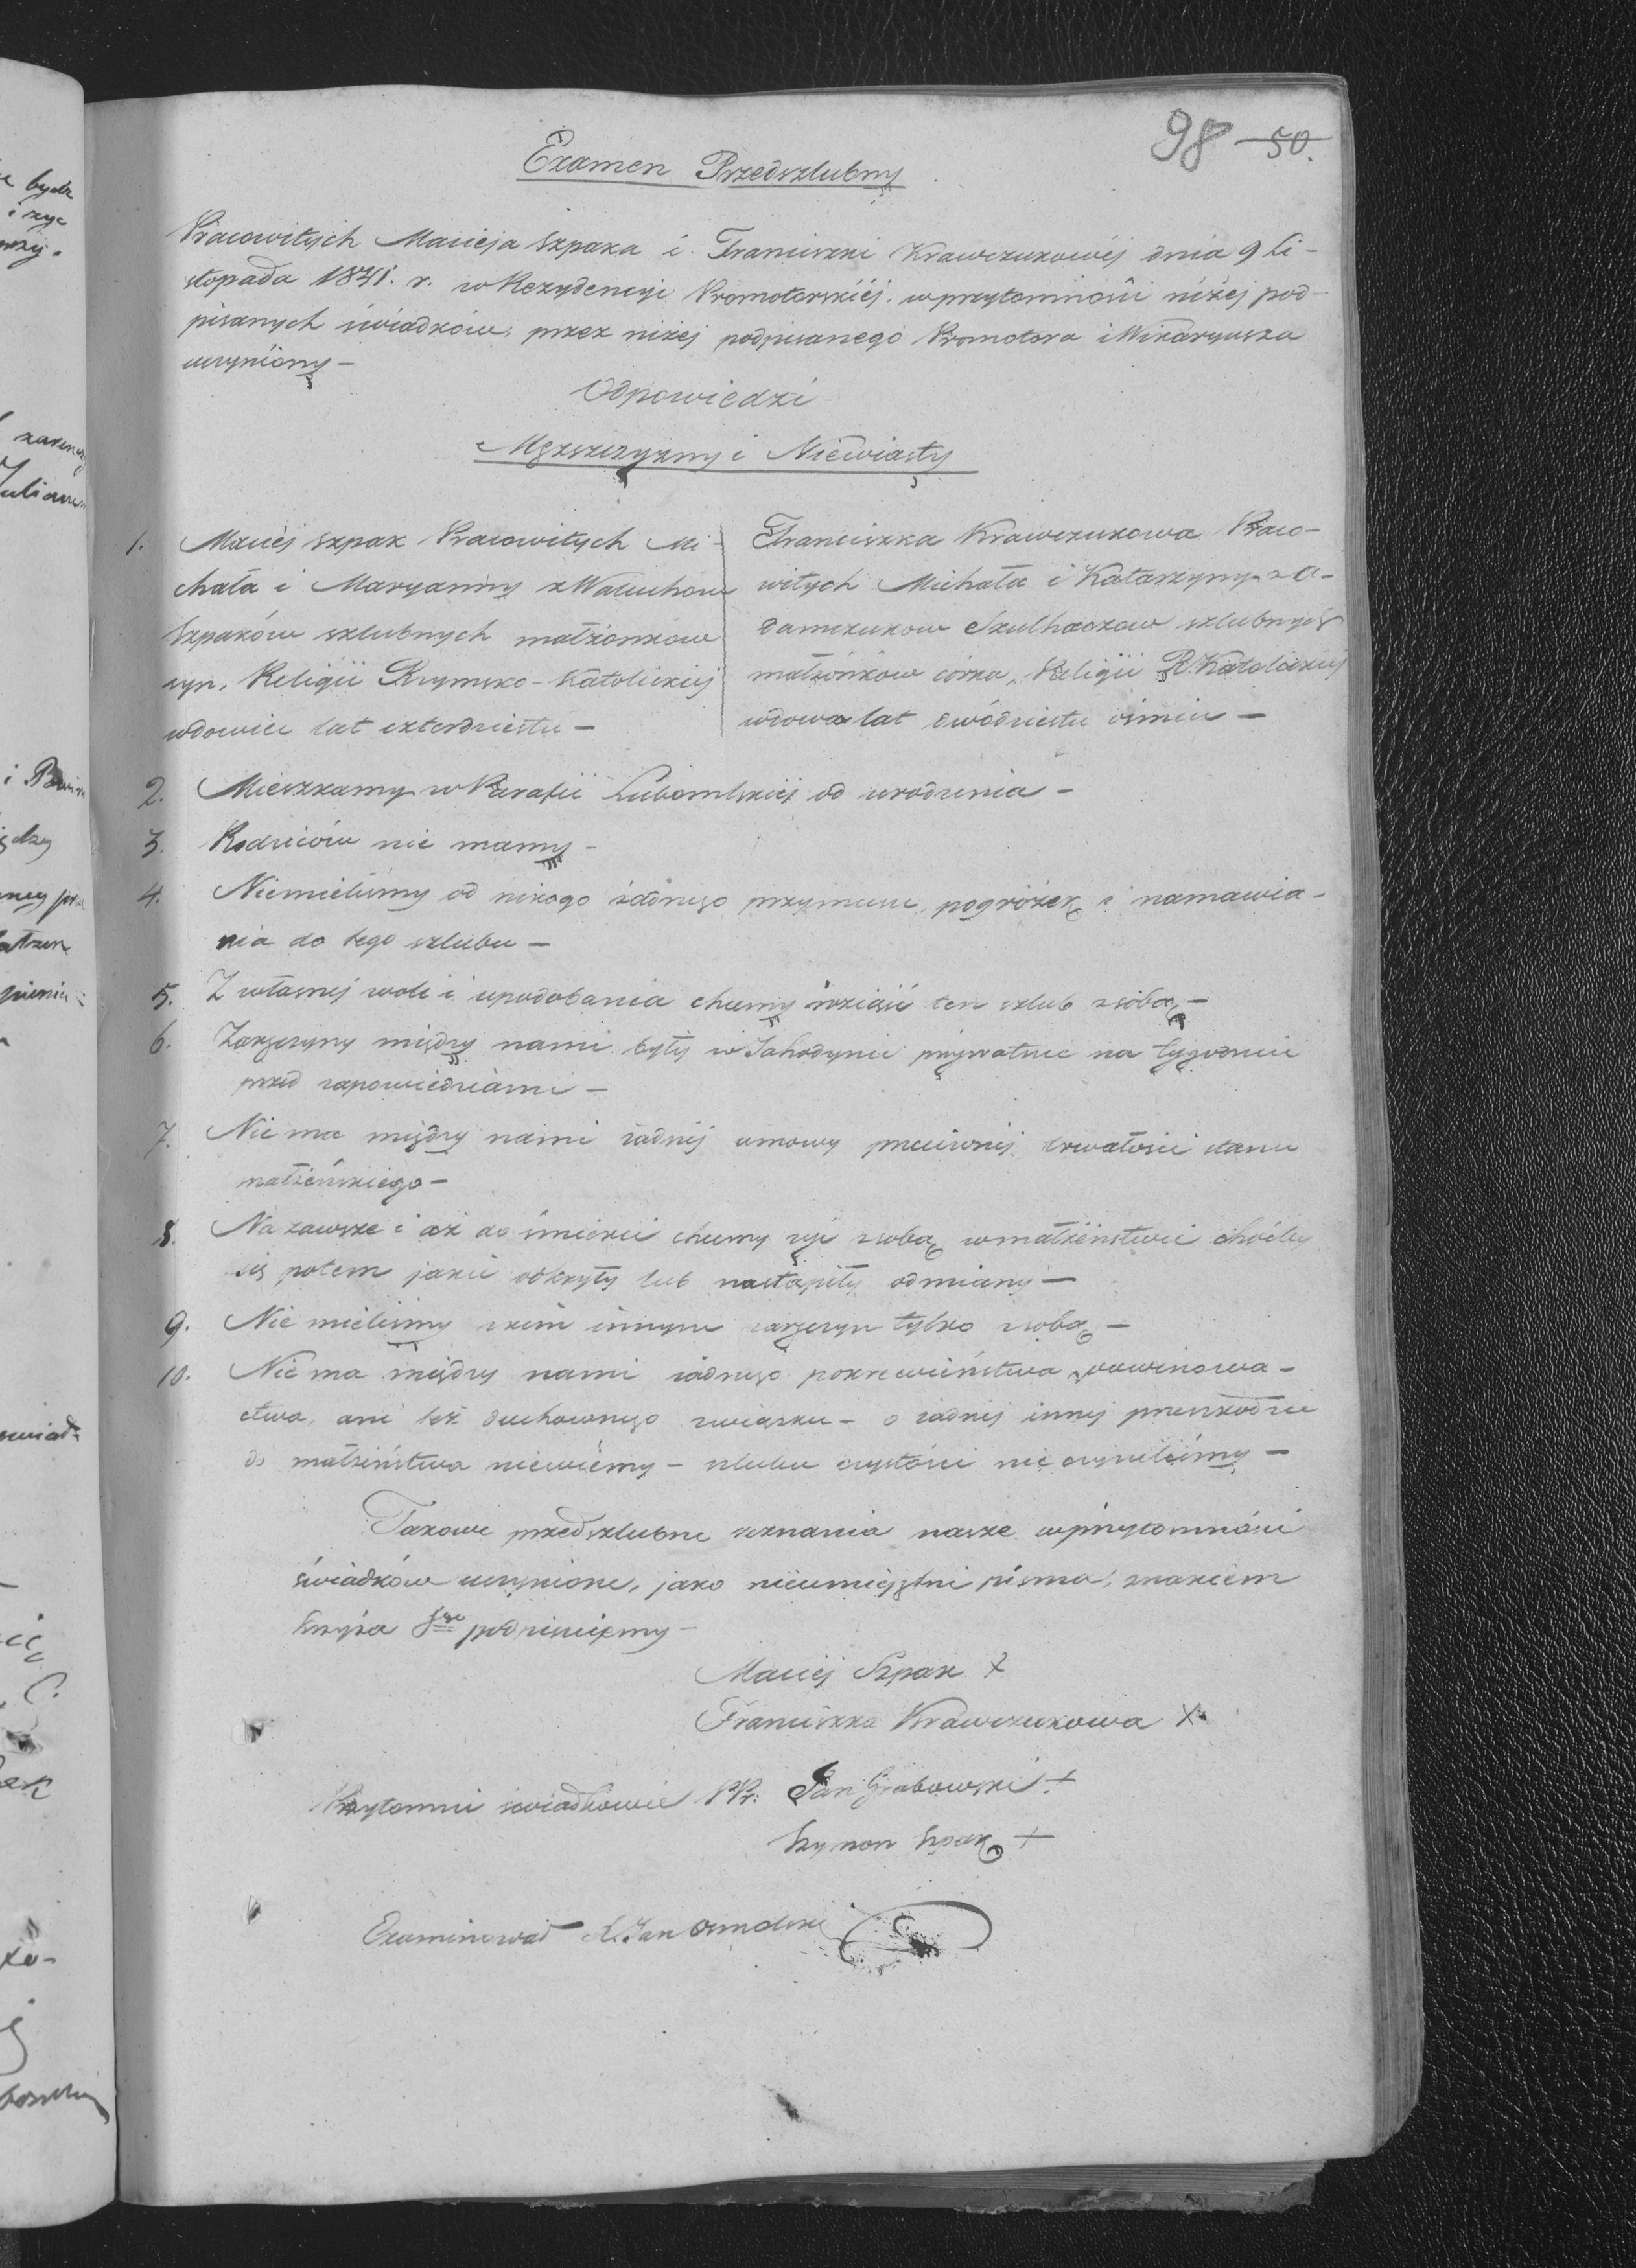 98 50.
Examen Przedszlubny
Pracowitych Macieja Szpaka i Franciszki Krawczukowéj dnia 9 li-
stopada 1841. r. w Rezydencyi Promotorskiéj w przytomności niżéj pod-
pisanych świadków, przez niżéj podpisanego Promotora i Wikaryusza
uczyniony -
Odpowiedzi
Męższczyzny i Niewiasty
1. Maciéj Szpak Pracowitych Mi-
chała i Maryanny z Waluchów
Szpaków szlubnych małżonków
syn, Religii Rzymsko-Katolickiéj
wdowiec lat czterdziestu -
Franciszka Krawczukowa Praco-
witych Michała i Katarzyny z A-
damczukow Szulhaczow szlubnych
małżonków córka, Religii R. Katolickiéj
wdowa lat dwódziestu óśmiu -
2. Mieszkamy w Parafii Lubomlskiéj od urodzenia -
3. Rodziców nie mamy -
4. Niemieliśmy od nikogo żadnego przymusu, pogróżek i namawia-
nia do tego szlubu -
5. Z własnéj woli i upodobania chcemy wziąść ten szlub z sobą -
6. Zaręczyny między nami były w Jahodynie prywatnie na tygodnie
przed zapowiedziami -
7. Nie ma między nami żadnéj umowy przeciwnéj trwałości stanu
małżeńskiego -
8. Na zawsze i aż do śmierci chcemy żyć z sobą w małżeństwie choćby
się potem jakie odkryły lub nastąpiły odmiany -
9. Nie mieliśmy z kim innym zaręczyn tylko z sobą -
10. Nie ma między nami żadnego pokrewieństwa, powinowa-
ctwa, ani też duchownego związku - o żadnéj innéj przeszkodzie
do małżeństwa niewiémy - szlubu czystości nie czyniliśmy -
Takowe przedszlubne zeznania nasze w przytomności
świadków uczynione, jako nieumiejętni pisma, znakiem
krzyża Sgo podpisujemy -
Maciéj Szpak X
Franciszka Krawczukowa X
Przytomni świadkowie PP: Jan Grabowski +
Szymon Szpak +
Examinował X. Jan